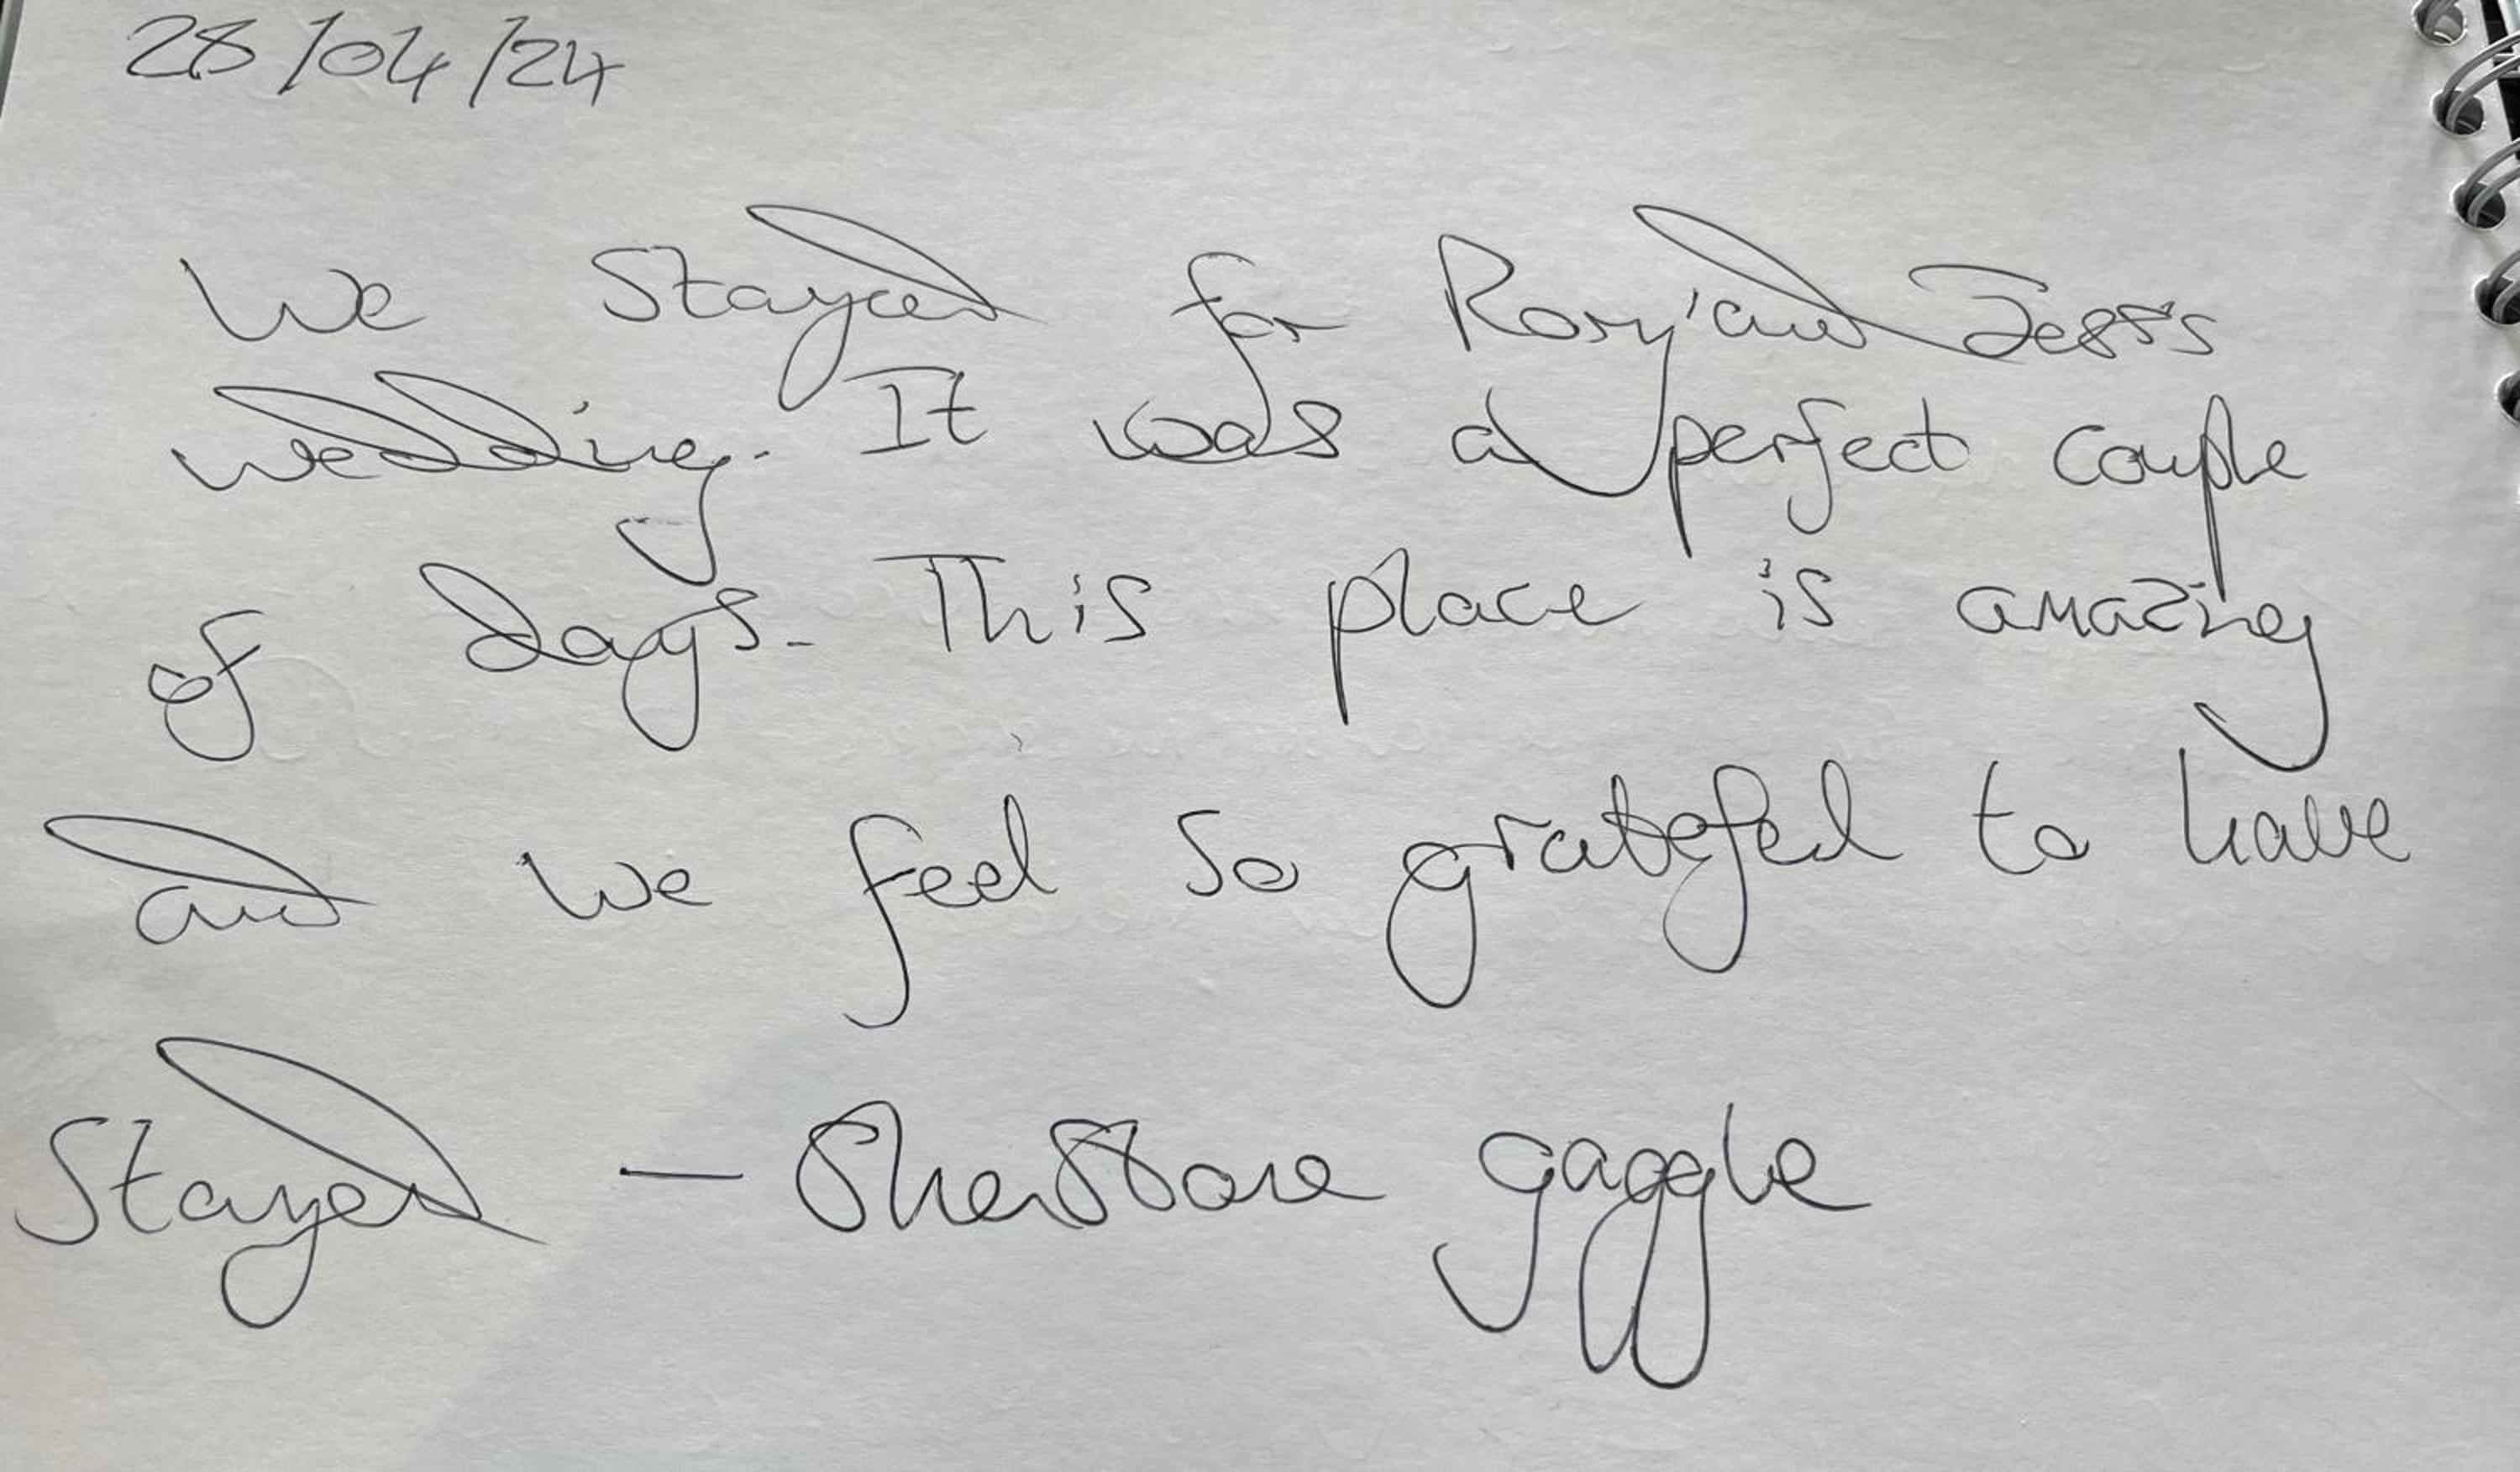 28/04/24
We stayed for Rory and Jess's
wedding. It was a perfect couple
of days. This place is amazing
and we feel so grateful to have
stayed - gaggle